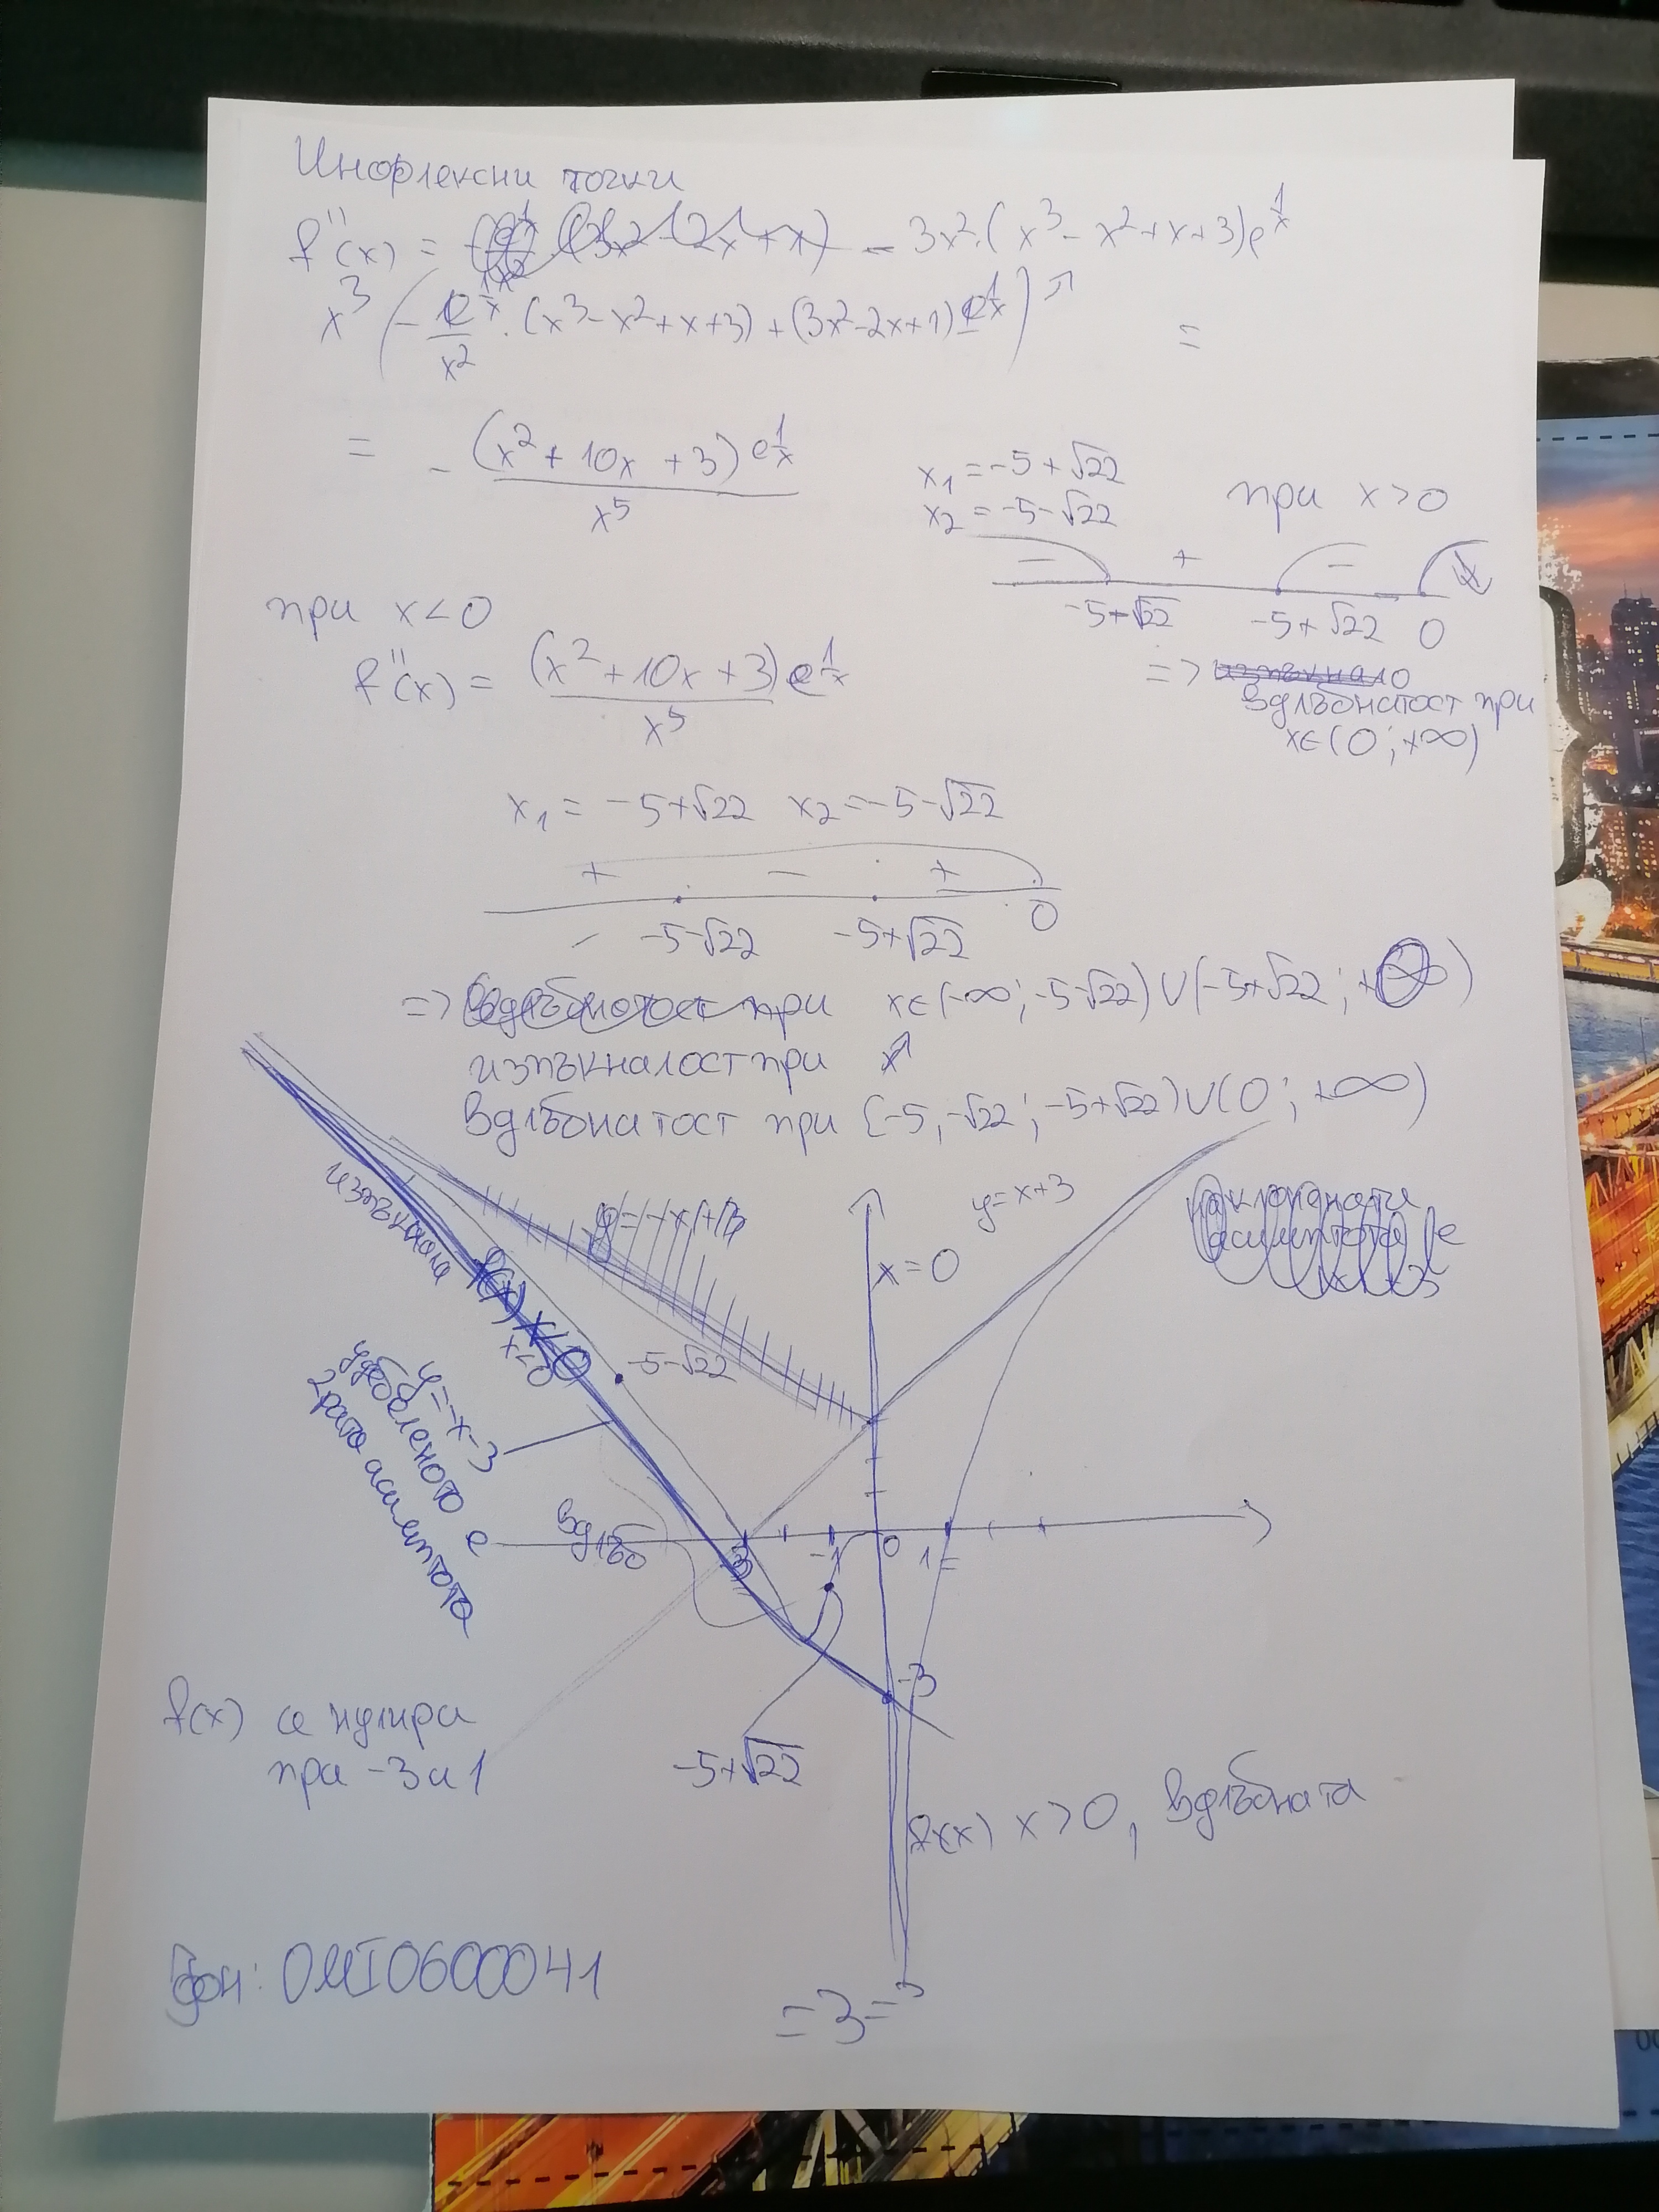 Инфлексни точки
f''(x) = - 3x²·(x³ - x² + x + 3)e^{1/x}
x³(-e^{1/x}/x² · (x³ - x² + x + 3) + (3x² - 2x + 1)e^{1/x}) =
= - (x² + 10x + 3)e^{1/x} / x⁵
x₁ = -5 + √22
x₂ = -5 - √22
при x > 0
- + -
-5+√22 -5+√22 0
=> вдлъбнатост при
x∈(0; +∞)
при x < 0
f''(x) = (x² + 10x + 3)e^{1/x} / x⁵
x₁ = -5+√22 x₂ = -5-√22
+ - +
- -5-√22 -5+√22 0
=> при x∈(-∞; -5-√22) ∪ (-5+√22; +
изпъкналост при x
Вдлбонатост при (-5,-√22; -5+√22) ∪ (0; +∞)
изпъкнала
y=-x+3
x=0
y=x+3
наклонната
асимптота е
f(x) x<0
x<0
-5-√22
y=-x-3
удебеленото е
асимптота
вдлъб
-1 0 1
-3
f(x) се нулира
при -3 и 1
-5+√22
f(x) x>0, вдлъбната
фн: 0MI0600041
=3=